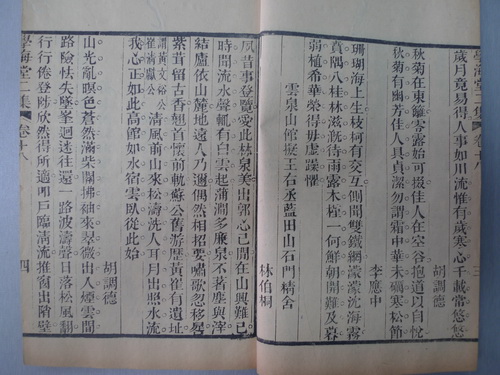 學海堂二集 卷十八 三
歲月竟易得人事如川流惟有歲寒心千載常悠悠
胡調德
秋菊在東籬零露始可掇佳人在空谷抱道以自悅
秋菊有幽芳佳人具貞潔勿謂霜中華未礙寒松節
李應中
珊瑚海上生枝柯有交互側聞雙鐵網濛濛沈海霧
賁隅八桂林滋待雨露木槿一何鮮朝開難及暮
弱植希華榮得毋虛躁懼
雲泉山館擬王右丞藍田山石門精舍
林伯桐
夙昔事登覽愛此林泉美出郭心已閒在山興難已
時聞流水聲雲起蒲澗多廉泉不著塵與滓
結廬依山麓地遠人乃邇偶然相招要嘯歌忽移晷
紫茸留古香翹首懷前軌蘇公舊游歷黃崔有遺址
黃文裕公崔清獻公 清風前山來松濤洗人耳月出照水流
我心正如此高館如水宿雲臥從此始
胡調德
山光亂暝色蒼然滿柴關拂袖來翠微出人煙雲間
路險怯失墜峯迴述往還一路波濤聲日落松風翻
行行倦登陟欣然得所適叩戶臨淸流推窗出階
學海堂二集 卷十八 四